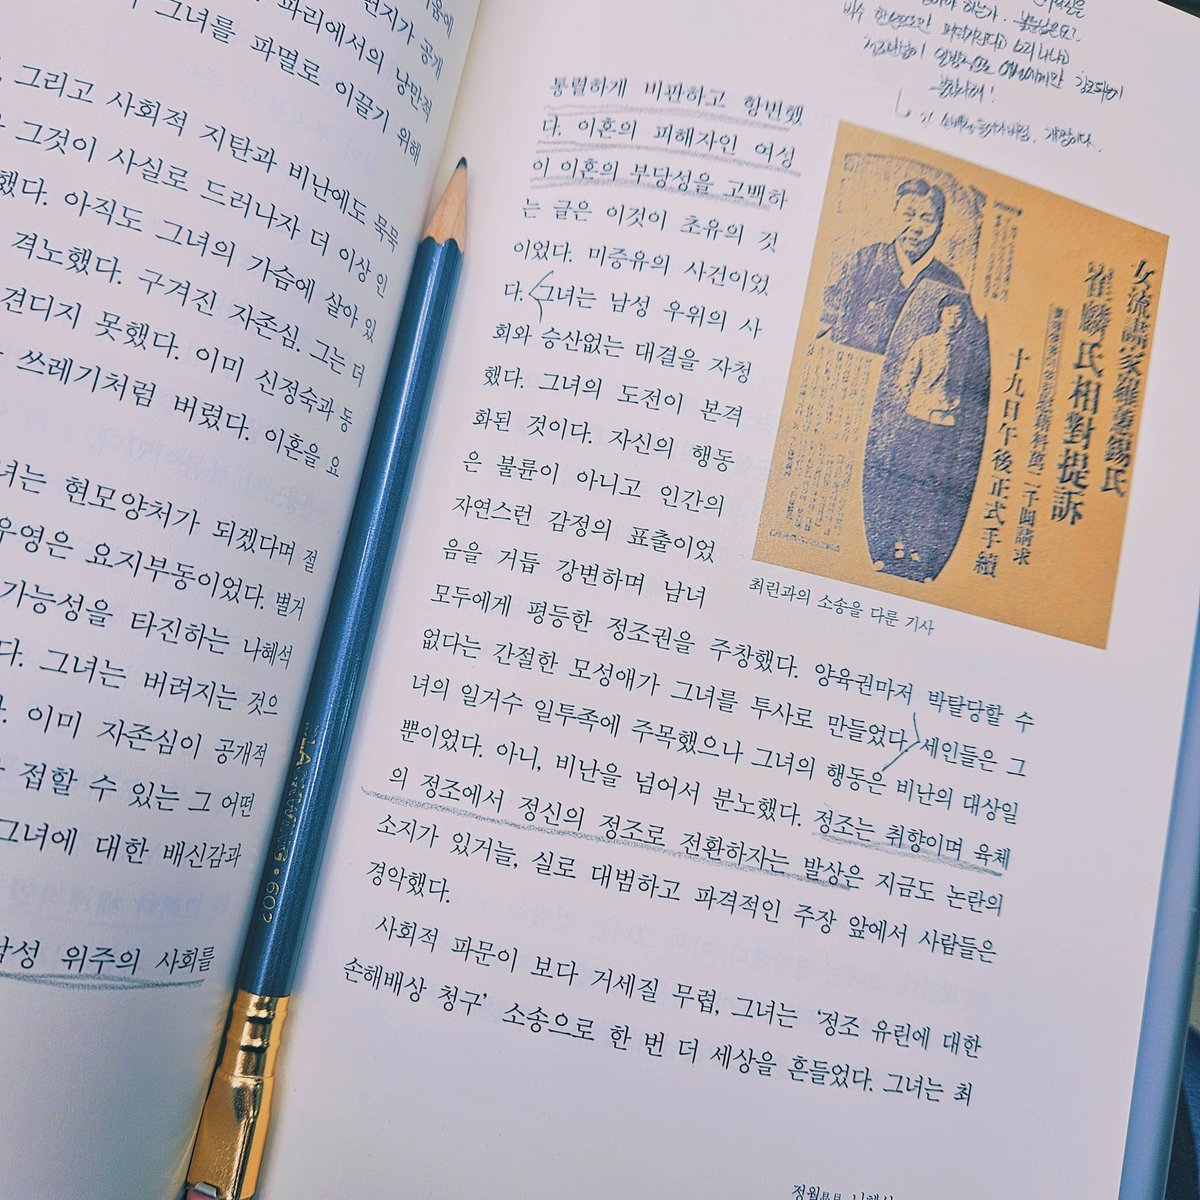 편지가 공개
파리에서의 낭만적
그녀를 파멸로 이끌기 위해
그리고 사회적 지탄과 비난에도 묵묵
그것이 사실로 드러나자 더 이상 인
했다. 아직도 그녀의 가슴에 살아 있
격노했다. 구겨진 자존심. 그는 더
견디지 못했다. 이미 신정숙과 동
쓰레기처럼 버렸다. 이혼을 요
녀는 현모양처가 되겠다며 절
우영은 요지부동이었다. 별거
가능성을 타진하는 나혜석
다. 그녀는 버려지는 것으
이미 자존심이 공개적
접할 수 있는 그 어떤
그녀에 대한 배신감과
남성 위주의 사회를
602
통렬하게 비판하고 항변했
다. 이혼의 피해자인 여성
이 이혼의 부당성을 고백하
는 글은 이것이 초유의 것
이었다. 미증유의 사건이었
다. 그녀는 남성 우위의 사
회와 승산없는 대결을 자청
했다. 그녀의 도전이 본격
화된 것이다. 자신의 행동
은 불륜이 아니고 인간의
자연스런 감정의 표출이었
음을 거듭 강변하며 남녀
모두에게 평등한 정조권을 주창했다. 양육권마저 박탈당할 수
없다는 간절한 모성애가 그녀를 투사로 만들었다. 세인들은 그
녀의 일거수 일투족에 주목했으나 그녀의 행동은 비난의 대상일
뿐이었다. 아니, 비난을 넘어서 분노했다. 정조는 취향이며 육체
의 정조에서 정신의 정조로 전환하자는 발상은 지금도 논란의
소지가 있거늘, 실로 대범하고 파격적인 주장 앞에서 사람들은
경악했다.
사회적 파문이 보다 거세질 무렵, 그녀는 ‘정조 유린에 대한
손해배상 청구’ 소송으로 한 번 더 세상을 흔들었다. 그녀는 최
女流畵家羅蕙錫氏
崔麟氏相對提訴
十九日午後正式手續
최린과의 소송을 다룬 기사